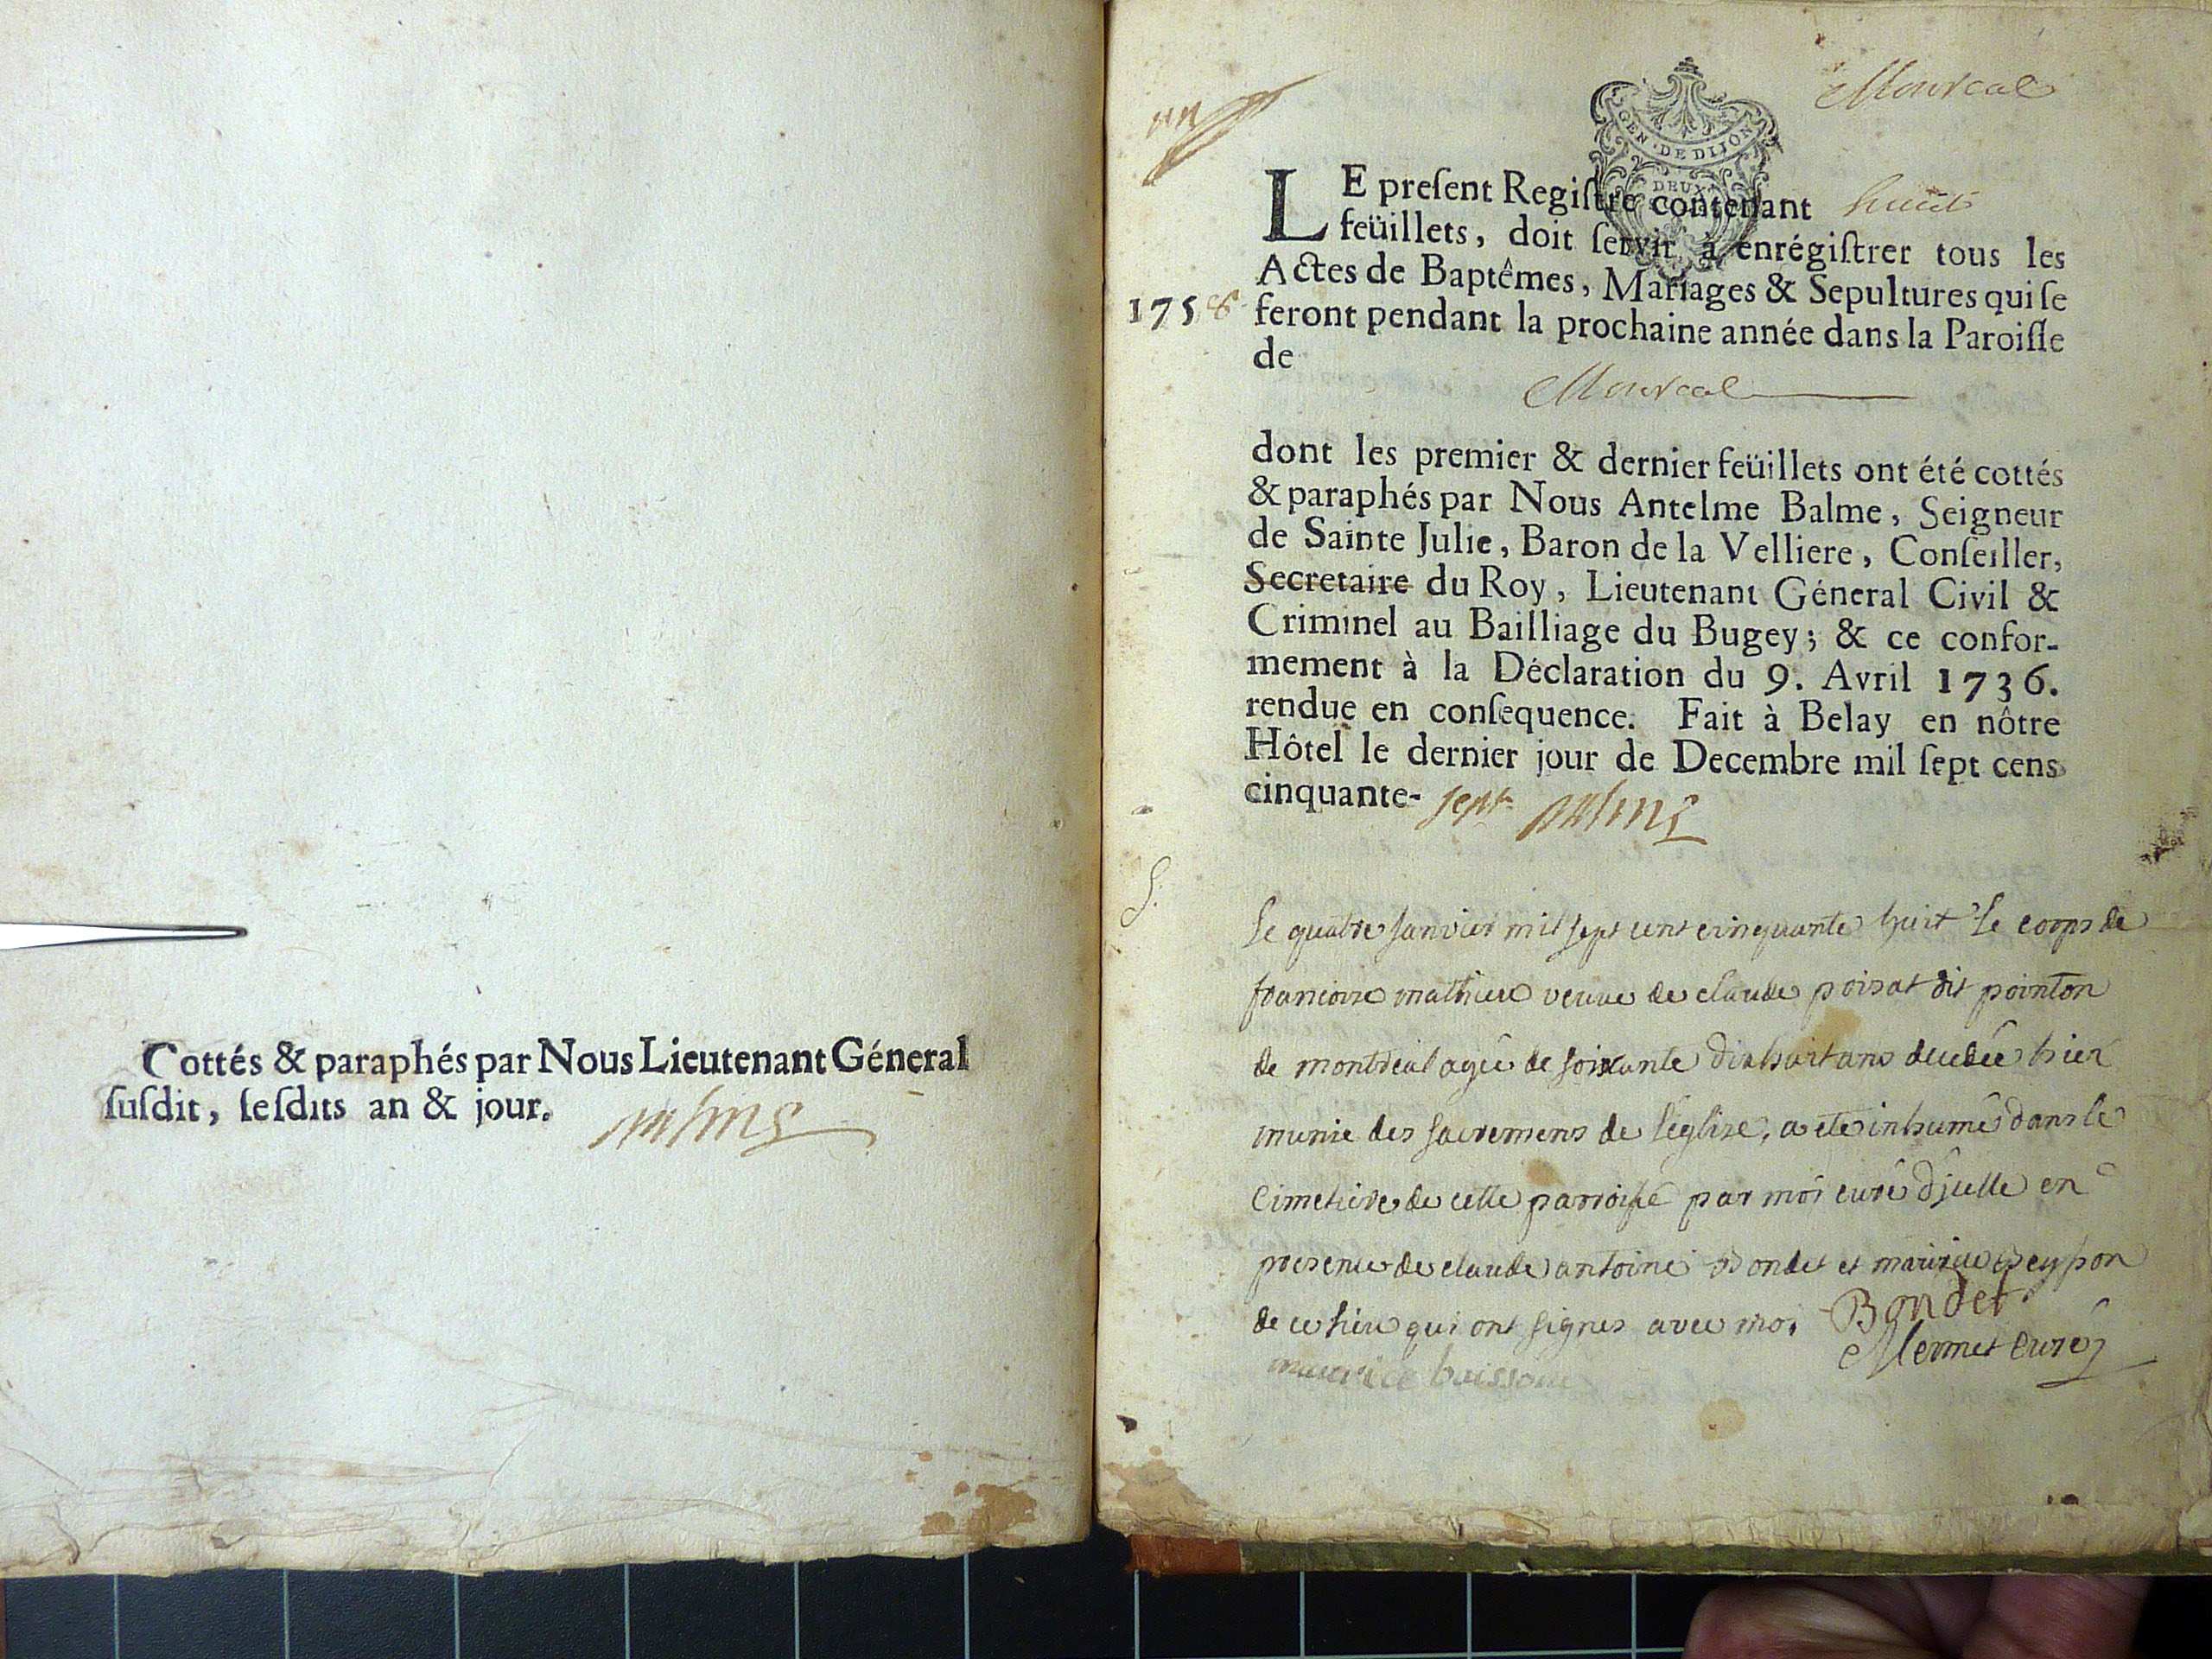 Cottés & paraphés par Nous Lieutenant Géneral
ſuſdit, leſdits an & jour.
un
Montreal
GEN. DE DIJON
DEUX
LE preſent Regiſtre contenant huit
feüillets, doit ſervir à enrégiſtrer tous les
Actes de Baptêmes, Mariages & Sepultures qui ſe
1758 feront pendant la prochaine année dans la Paroiſſe
de
Montreal
dont les premier & dernier feüillets ont été cottés
& paraphés par Nous Antelme Balme, Seigneur
de Sainte Julie, Baron de la Velliere, Conſeiller,
Secretaire du Roy, Lieutenant Géneral Civil &
Criminel au Bailliage du Bugey; & ce confor-
mement à la Déclaration du 9. Avril 1736.
rendue en conſequence. Fait à Belay en nôtre
Hôtel le dernier jour de Decembre mil ſept cens
cinquante- sept
S.
Le quatre janvier mil sept cent cinquante huit le corps de
francoise mathieu veuve de claude poisat dit pointon
de montreal agée de soixante dixhuit ans decedée hier
munie des sacremens de l'église, a ete inhumé dans le
cimetiere de cette parroisse par moi curé d'jcelle en
presence de claude antoine Bondet et maurice
de ce lieu qui ont signés avec moi Bondet
maurice buisson Mermet curé